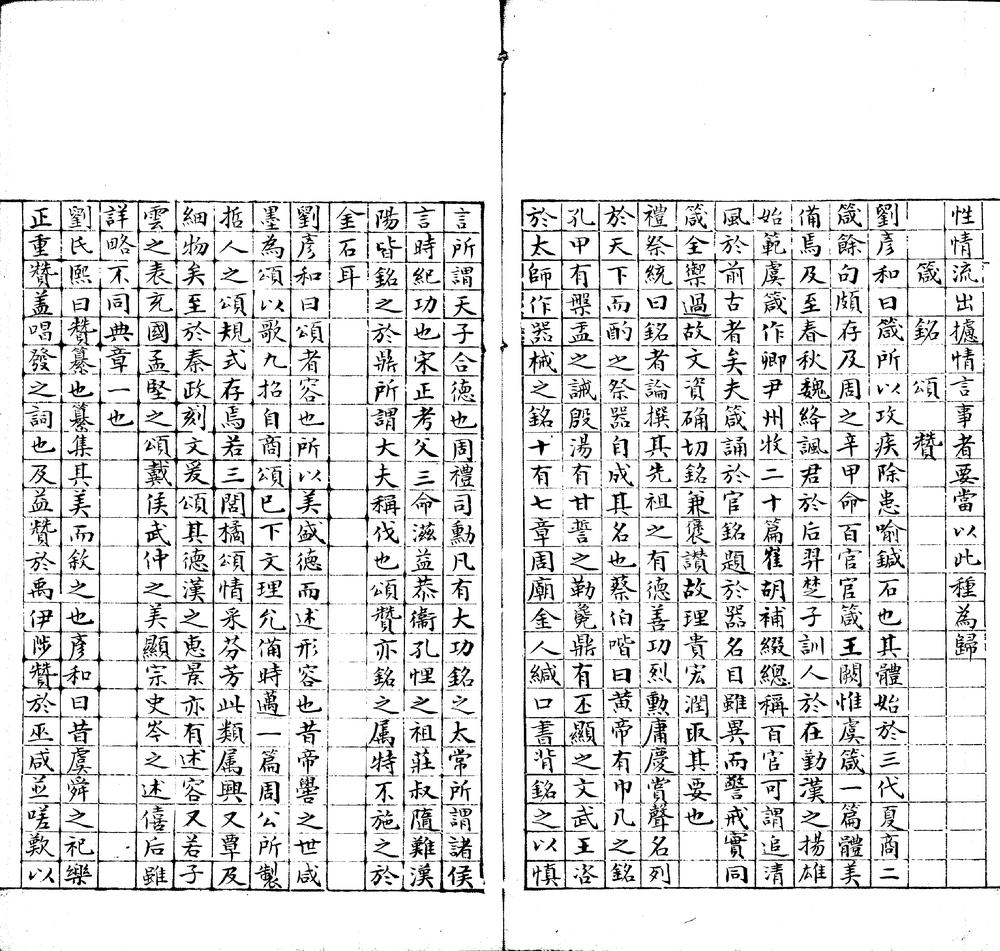 性情流出擄情言事者要當以此種為歸
箴 銘 頌 贊
劉彥和曰箴所以攻疾除患喻鍼石也其體始於三代夏商二
箴餘句頗存及周之辛甲命百官官箴王闕惟虞箴一篇體美
備焉及至春秋魏絳諷君於后羿楚子訓人於在勤漢之揚雄
始範虞箴作卿尹州牧二十篇崔胡補綴總稱百官可謂追清
風於前古者矣夫箴誦於官銘題於器名目雖異而警戒實同
箴全禦過故文資确切銘兼褒讚故理貴宏潤取其要也
禮祭統曰銘者論撰其先祖之有德善功烈勲庸慶賞聲名列
於天下而酌之祭器自成其名也蔡伯喈曰黃帝有巾几之銘
孔甲有槃盂之誡殷湯有甘誓之勒毚鼎有丕顯之文武王咨
於太師作器械之銘十有七章周廟金人緘口書背銘之以慎
言所謂天子合德也周禮司勳凡有大功銘之太常所謂諸侯
言時紀功也宋正考父三命滋益恭衞孔悝之祖莊叔隨難漢
陽皆銘之於鼎所謂大夫稱伐也頌贊亦銘之属特不施之於
金石耳
劉彥和曰頌者容也所以美盛德而述形容也昔帝嚳之世咸
墨為頌以歌九招自商頌已下文理允備時邁一篇周公所製
哲人之頌規式存焉若三閭橘頌情采芬芳此類属興又覃及
細物矣至於秦政刻文爰頌其德漢之惠景亦有述容又若子
雲之表充國孟堅之頌戴侯武仲之美顯宗史岑之述僖后雖
詳略不同典章一也
劉氏熙曰贊纂也纂集其美而敘之也彥和曰昔虞舜之祀樂
正重贊蓋唱發之詞也及益贊於禹伊陟贊於巫咸並嗟歎以